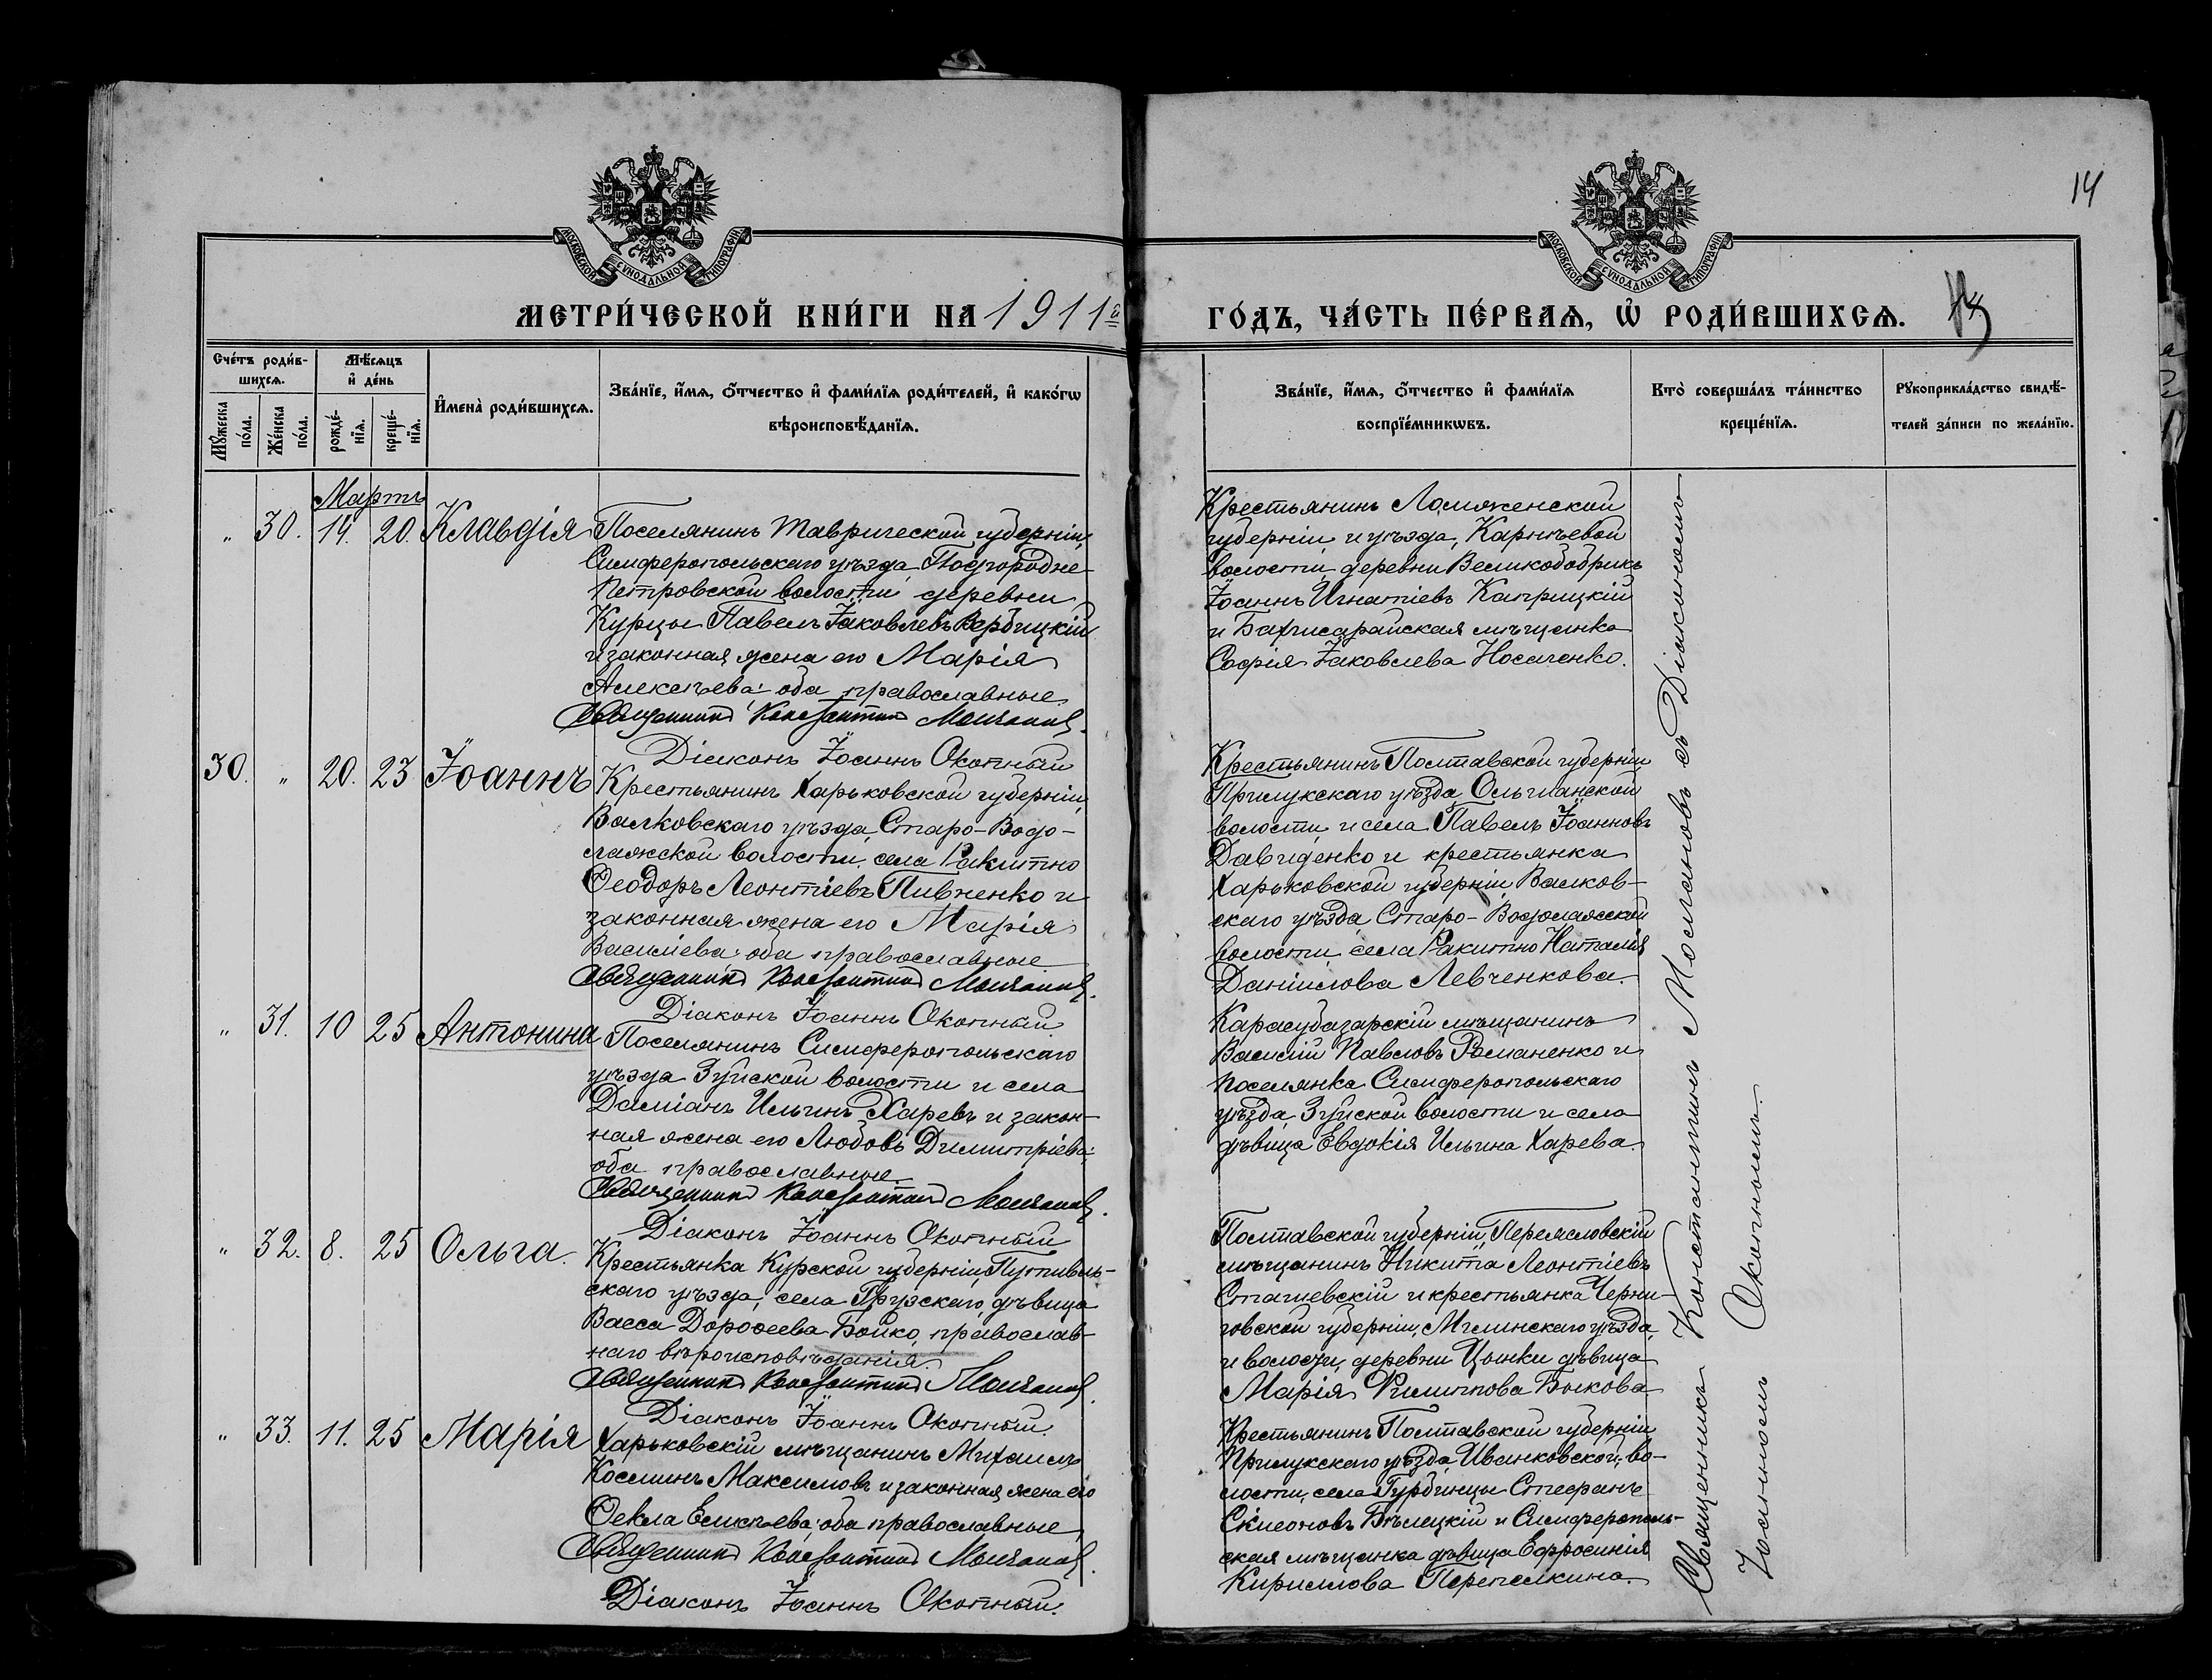 14
МОСКОВСКОЙ СѴНОДАЛЬНОЙ ТИПОГРАФІИ
МОСКОВСКОЙ СѴНОДАЛЬНОЙ ТИПОГРАФІИ
МЕТРИ́ЧЕСКОЙ КНИ́ГИ НА 1911й
ГО́ДЪ, ЧА́СТЬ ПЕ́РВАЯ, Ѡ҆ РОДИ́ВШИХСЯ.
Сче́тъ роди́в-
шихся.
Мꙋ́жеска
по́ла.
Же́нска
по́ла.
Мѣ́сяцъ
и҆ де́нь
рожде́-
нїя.
креще́-
нїя.
И҆мена̀ роди́вшихся.
Зва́нїе, и҆́мя, ѻ҆́тчество и҆ фами́лїя роди́телей, и҆ како́гѡ
вѣроисповѣ́данїя.
Зва́нїе, и҆́мя, ѻ҆́тчество и҆ фами́лїя
воспрїе́мникѡвъ.
Кто̀ соверша́лъ та́инство
креще́нїя.
Рꙋкоприкла́дство свидѣ́-
телей за́писи по жела́нїю.
Мартъ
" 30. 14. 20. Клавдія
Поселянинъ Таврической губерніи,
Симферопольскаго уѣзда, Подгородне-
Петровской волости деревни
Курцы Павелъ Іаковлевъ Вербицкій
и законная жена его Марія
Алексѣева: оба православные
Священникъ Константинъ Молчановъ.
Діаконъ Іоаннъ Окопный
Крестьянинъ
губерніи и уѣзда,
волости деревни Великобобрикъ
Іоаннъ Игнатіевъ Каприцкій
и Бахчисарайская мѣщанка
Софія Іаковлева Носаченко.
30. " 20. 23 Іоаннъ
Крестьянинъ Харьковской губерніи,
Валковскаго уѣзда, Старо-Водо-
лажской волости, села Ракитно
Ѳеодоръ Леонтіевъ Пивненко и
законная жена его Марія
Василіева: оба православные
Священникъ Константинъ Молчановъ.
Діаконъ Іоаннъ Окопный
Крестьянинъ Полтавской губерніи
Прилукскаго уѣзда, Ольшанской
волости и села Павелъ Іоанновъ
Давиденко и крестьянка
Харьковской губерніи, Валков-
скаго уѣзда, Старо-Водолажской
волости села Ракитно Наталія
Даніилова Левченкова.
" 31. 10 25 Антонина
Поселянинъ Симферопольскаго
уѣзда Зуйской волости и села
Даміанъ Ильинъ Харевъ и закон-
ная жена его Любовь Димитріева:
оба православные.
Священникъ Константинъ Молчановъ.
Діаконъ Іоаннъ Окопный
Карасубазарскій мѣщанинъ
Василій Павловъ Романенко и
поселянка Симферопольскаго
уѣзда, Зуйской волости и села
дѣвица Евдокія Ильина Харева.
" 32. 8. 25 Ольга.
Крестьянка Курской губерніи, Путивль-
скаго уѣзда, села Грузскаго, дѣвица
Васса Дороѳеева Бойко, православ-
наго вѣроисповѣданія.
Священникъ Константинъ Молчановъ.
Діаконъ Іоаннъ Окопный.
Полтавской губерніи, Переясловскій
мѣщанинъ Никита Леонтіевъ
и крестьянка Черни-
говской губерніи, Мглинскаго уѣзда,
и волости, деревни Цынки дѣвица
Марія Филиппова Быкова
" 33. 11. 25 Марія
Харьковскій мѣщанинъ Михаилъ
Космин Максимовъ и законная жена его
Ѳекла Елисѣева: оба православные
Священникъ Константинъ Молчановъ.
Діаконъ Іоаннъ Окопный.
Крестьянинъ Полтавской губерніи
Прилукскаго уѣзда, Иванковской во-
лости, села Гурбинцы Стефанъ
Симеоновъ Бѣлецкій и Симферополь-
ская мѣщанка дѣвица Ефросинія
Кириллова Перепелкина.
Священникъ Константинъ Молчановъ съ Діакономъ
Іоанномъ Окопнымъ.